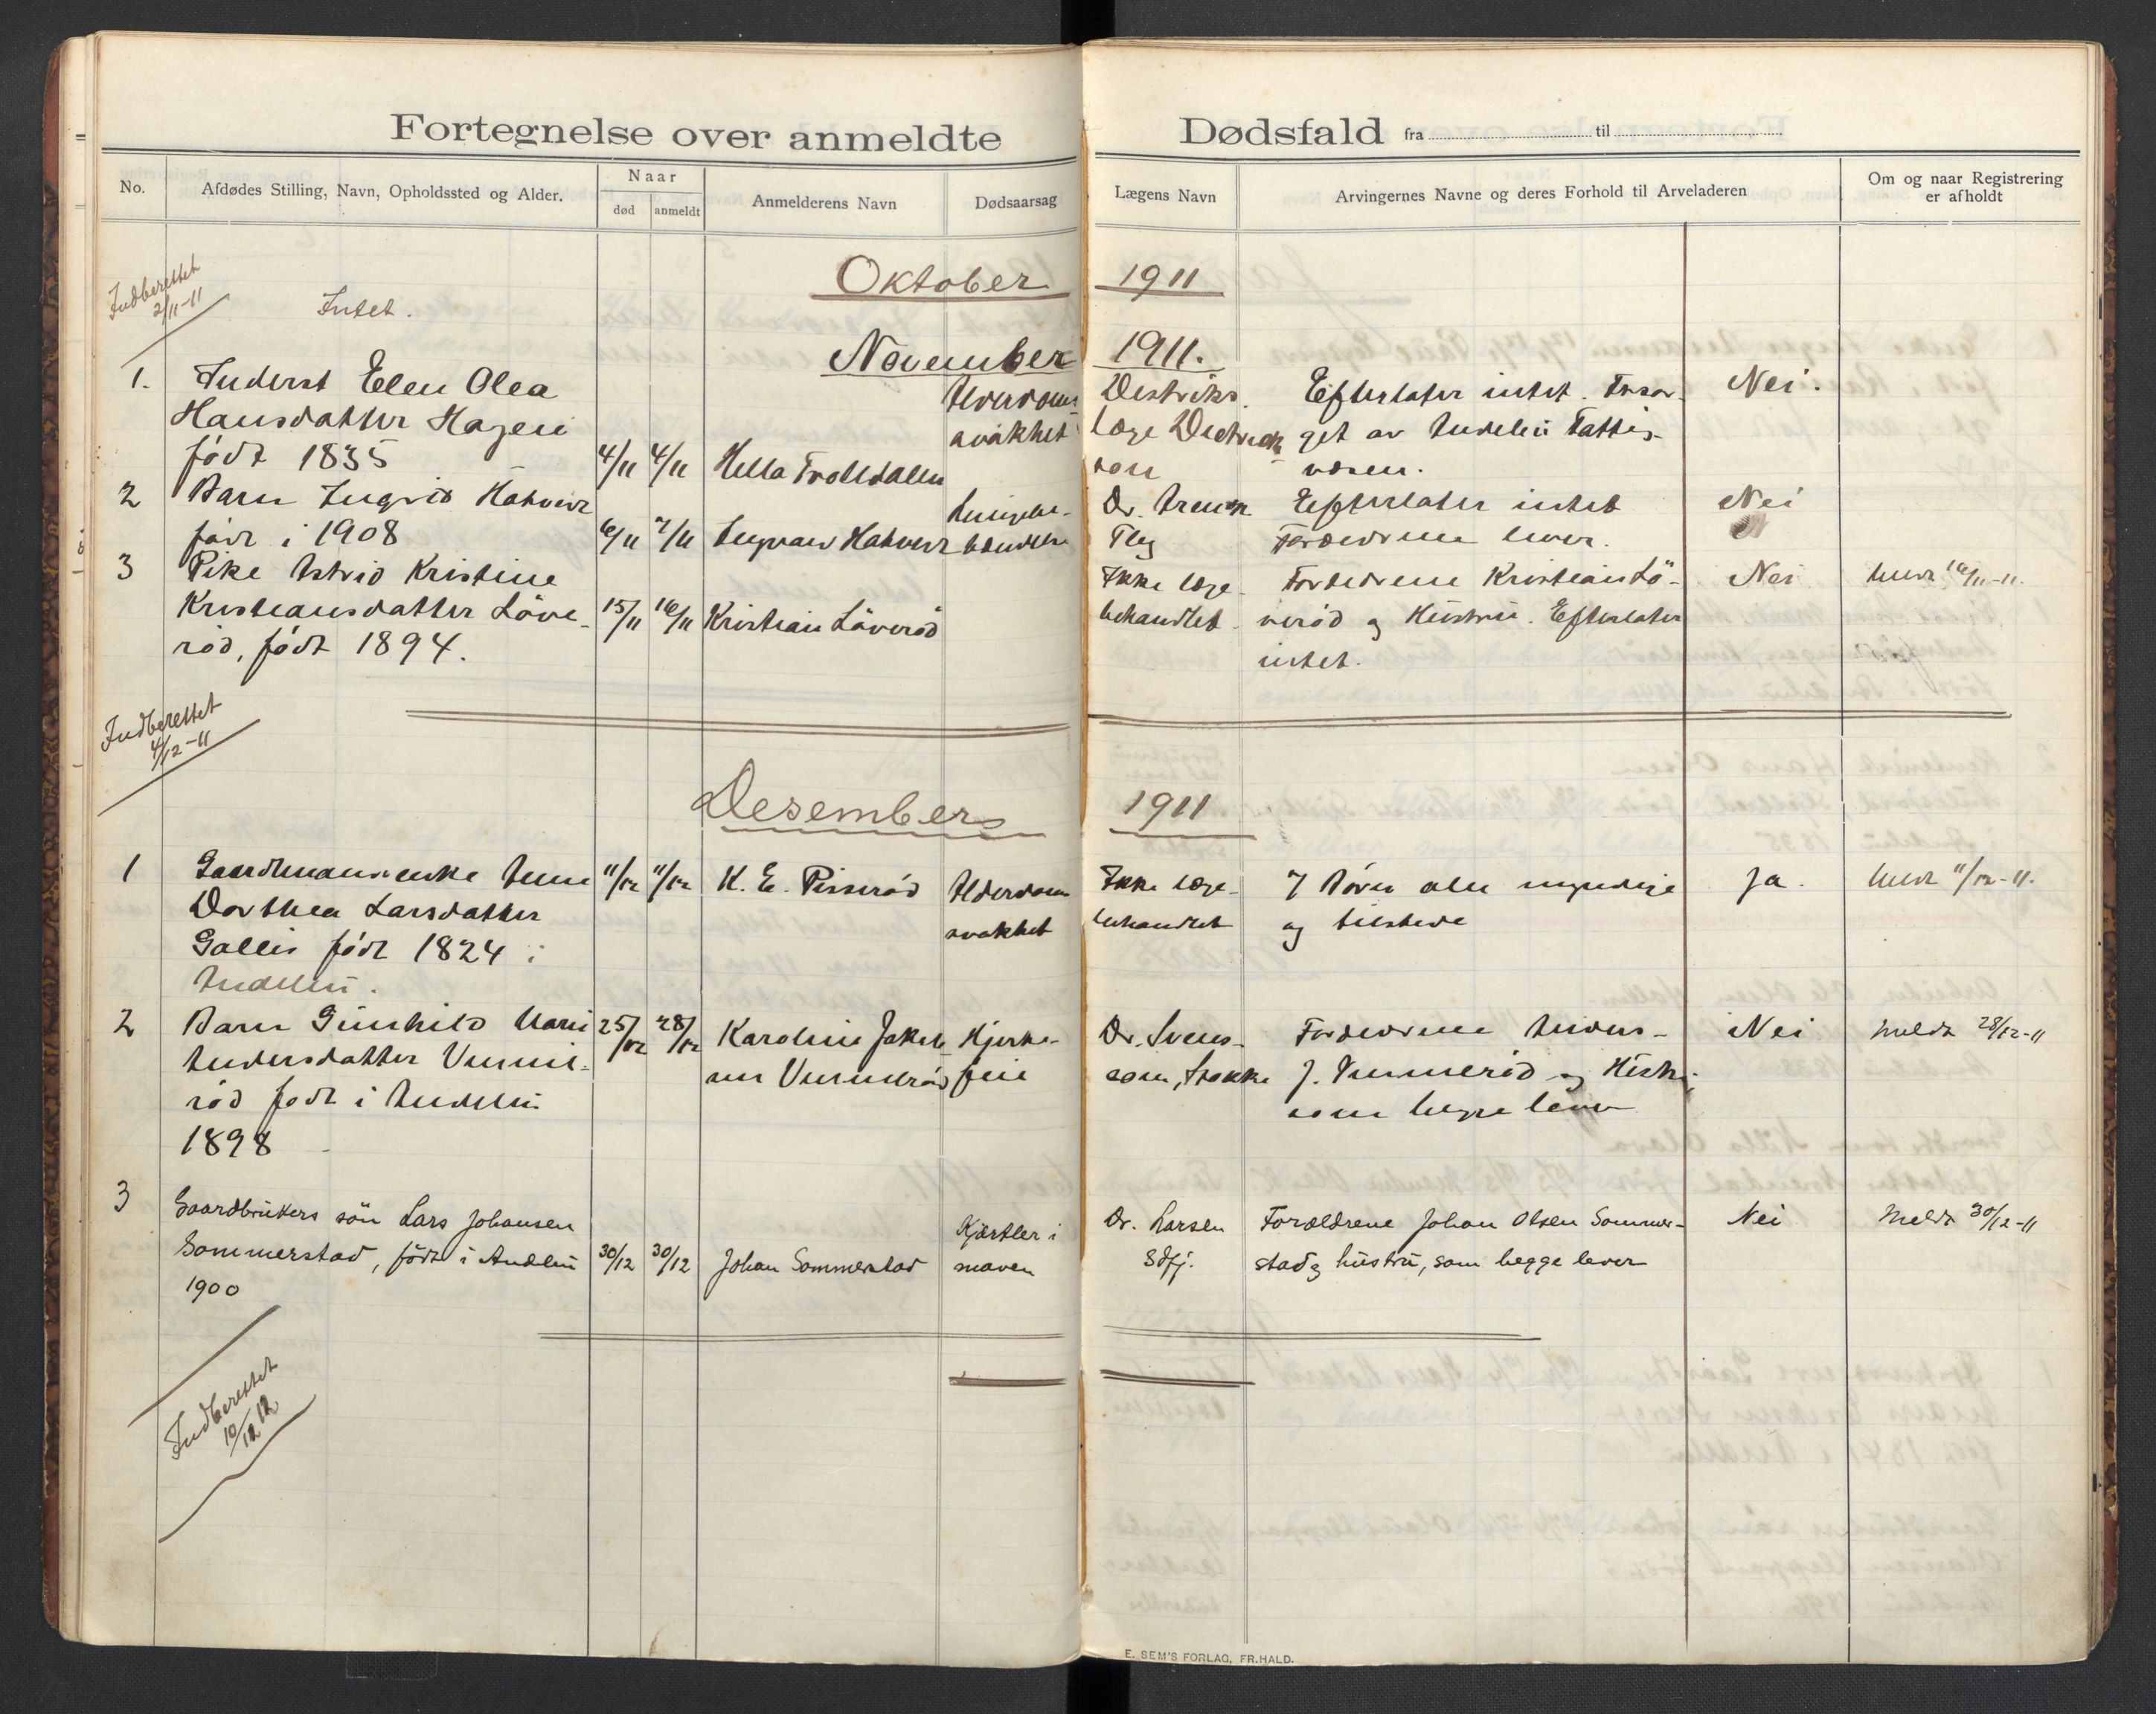 Fortegnelse over anmeldte Dødsfald fra til
No.
Afdødes Stilling, Navn, Opholdssted og Alder.
Naar
død
anmeldt
Anmelderens Navn
Dødsaarsag
Lægens Navn
Arvingernes Navne og deres Forhold til Arveladeren
Om og naar Registrering
er afholdt
Oktober 1911
Indberettet
2/11-11
Intet.
November 1911.
1.
Inderst Elen Olea
Hansdatter Hagen
født 1835
4/11
4/11
Hella Trolldalen
Alderdoms
svakhet
Distrikts
læge Diedrich
son
Efterlater intet. Forsør-
get av Andebu Fattig-
væsen.
Nei.
2
Barn Ingvid
født i 1908
6/11
7/11
Lungebe-
tændelse
Dr.
Efterlater intet
Forældrene lever.
Nei
3
Pike Astrid Kristine
Kristiansdatter Löve-
röd, født 1894.
15/11
16/11
Kristian Löveröd
Ikke læge-
behandlet
Forældrene Kristian Lö-
veröd og Hustru. Efterlater
intet.
Nei
Meldt 16/11-11.
Indberettet
4/12-11
Desember 1911
1
Gaardmannsenke Anne
Dorthea Larsdatter
Gallis født 1824 i
Andebu.
11/12
11/12
K. E. Pisseröd
Alderdoms
svakhet
Ikke læge-
behandlet
7 Börn alle myndige
og tilstede
Ja.
Meldt 11/12-11.
2
Barn Gunhild Marie
Andersdatter Vumme-
röd født i Andebu
1898
25/12
28/12
Karoline Jakob
sen Vummeröd
Hjerte-
feil
Dr. Svens-
son, Stokke
Forældrene Anders
J. Vummeröd og Hustru,
som begge lever
Nei
Meldt 28/12-11
3
Gaardbrukers sön Lars Johansen
Sommerstad, født i Andebu
1900
30/12
30/12
Johan Sommerstad
Kjærtler i
maven
Dr. Larsen
Sdfj.
Forældrene Johan Olsen Sommer-
stad og hustru, som begge lever
Nei
Meldt 30/12-11
Indberettet
10/12 12
E. SEM'S FORLAG, FR.HALD.